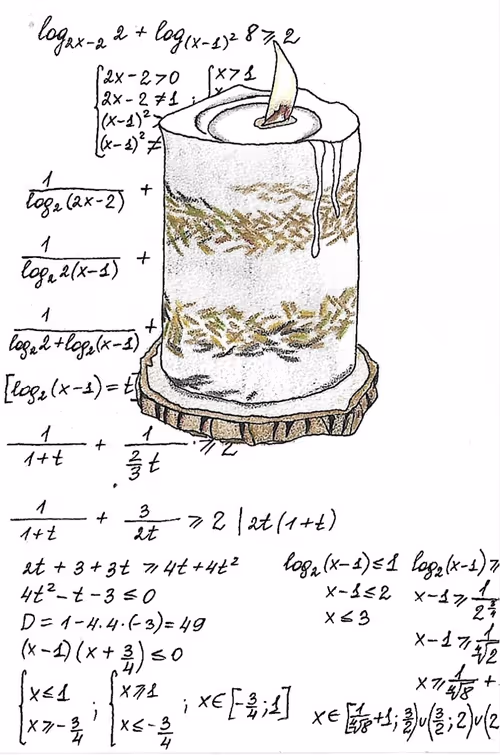 log_{2x-2} 2 + log_{(x-1)^2} 8 ⩾ 2
{ 2x-2>0 ; { x>1
2x-2≠1
(x-1)^2
(x-1)^2 ≠
1/log_2(2x-2) +
1/log_2 2(x-1) +
1/(log_2 2+log_2(x-1)) +
[log_2(x-1)=t]
1/(1+t) + 1/(2/3 t) ⩾ 2
1/(1+t) + 3/(2t) ⩾ 2 | 2t(1+t)
2t+3+3t ⩾ 4t+4t^2
4t^2-t-3 ≤ 0
D = 1-4.4.(-3)=49
(x-1)(x+3/4) ≤ 0
{ x≤1 ; { x⩾1 ; x∈[-3/4;1]
x⩾-3/4 x≤-3/4
log_2(x-1)≤1 log_2(x-1)⩾
x-1≤2 x-1⩾ 1/2^{3/4}
x≤3 x-1⩾
x⩾ 1/∜8 +
x∈[1/∜8+1;3/2)∪(3/2;2)∪(2